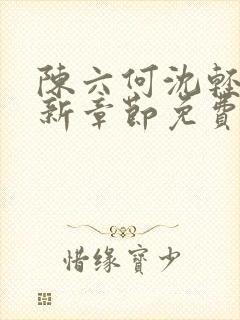 陳六何沈輕
新章節免費
惜缘寶少